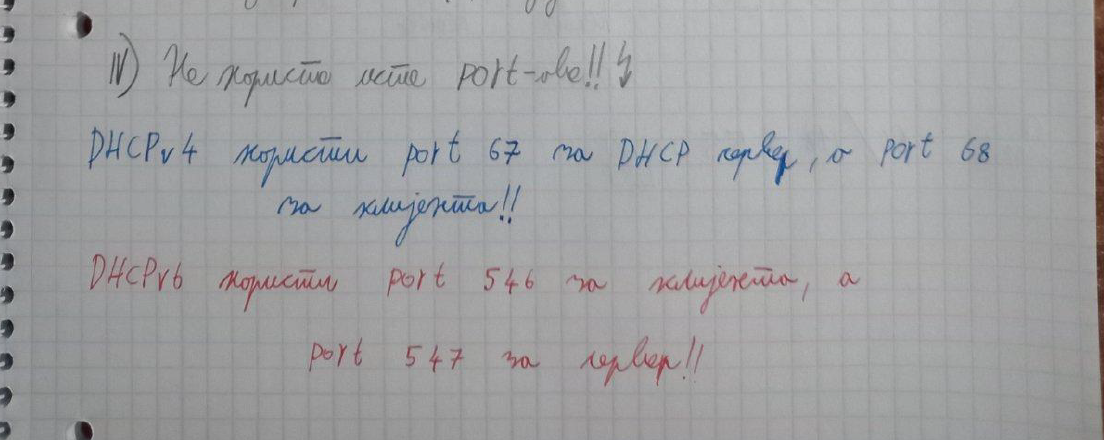 IV) Не користе исте port-ове!!
DHCPv4 користи port 67 за DHCP сервер, а port 68
за клијента!!
DHCPv6 користи port 546 за клијента, а
port 547 за сервер!!